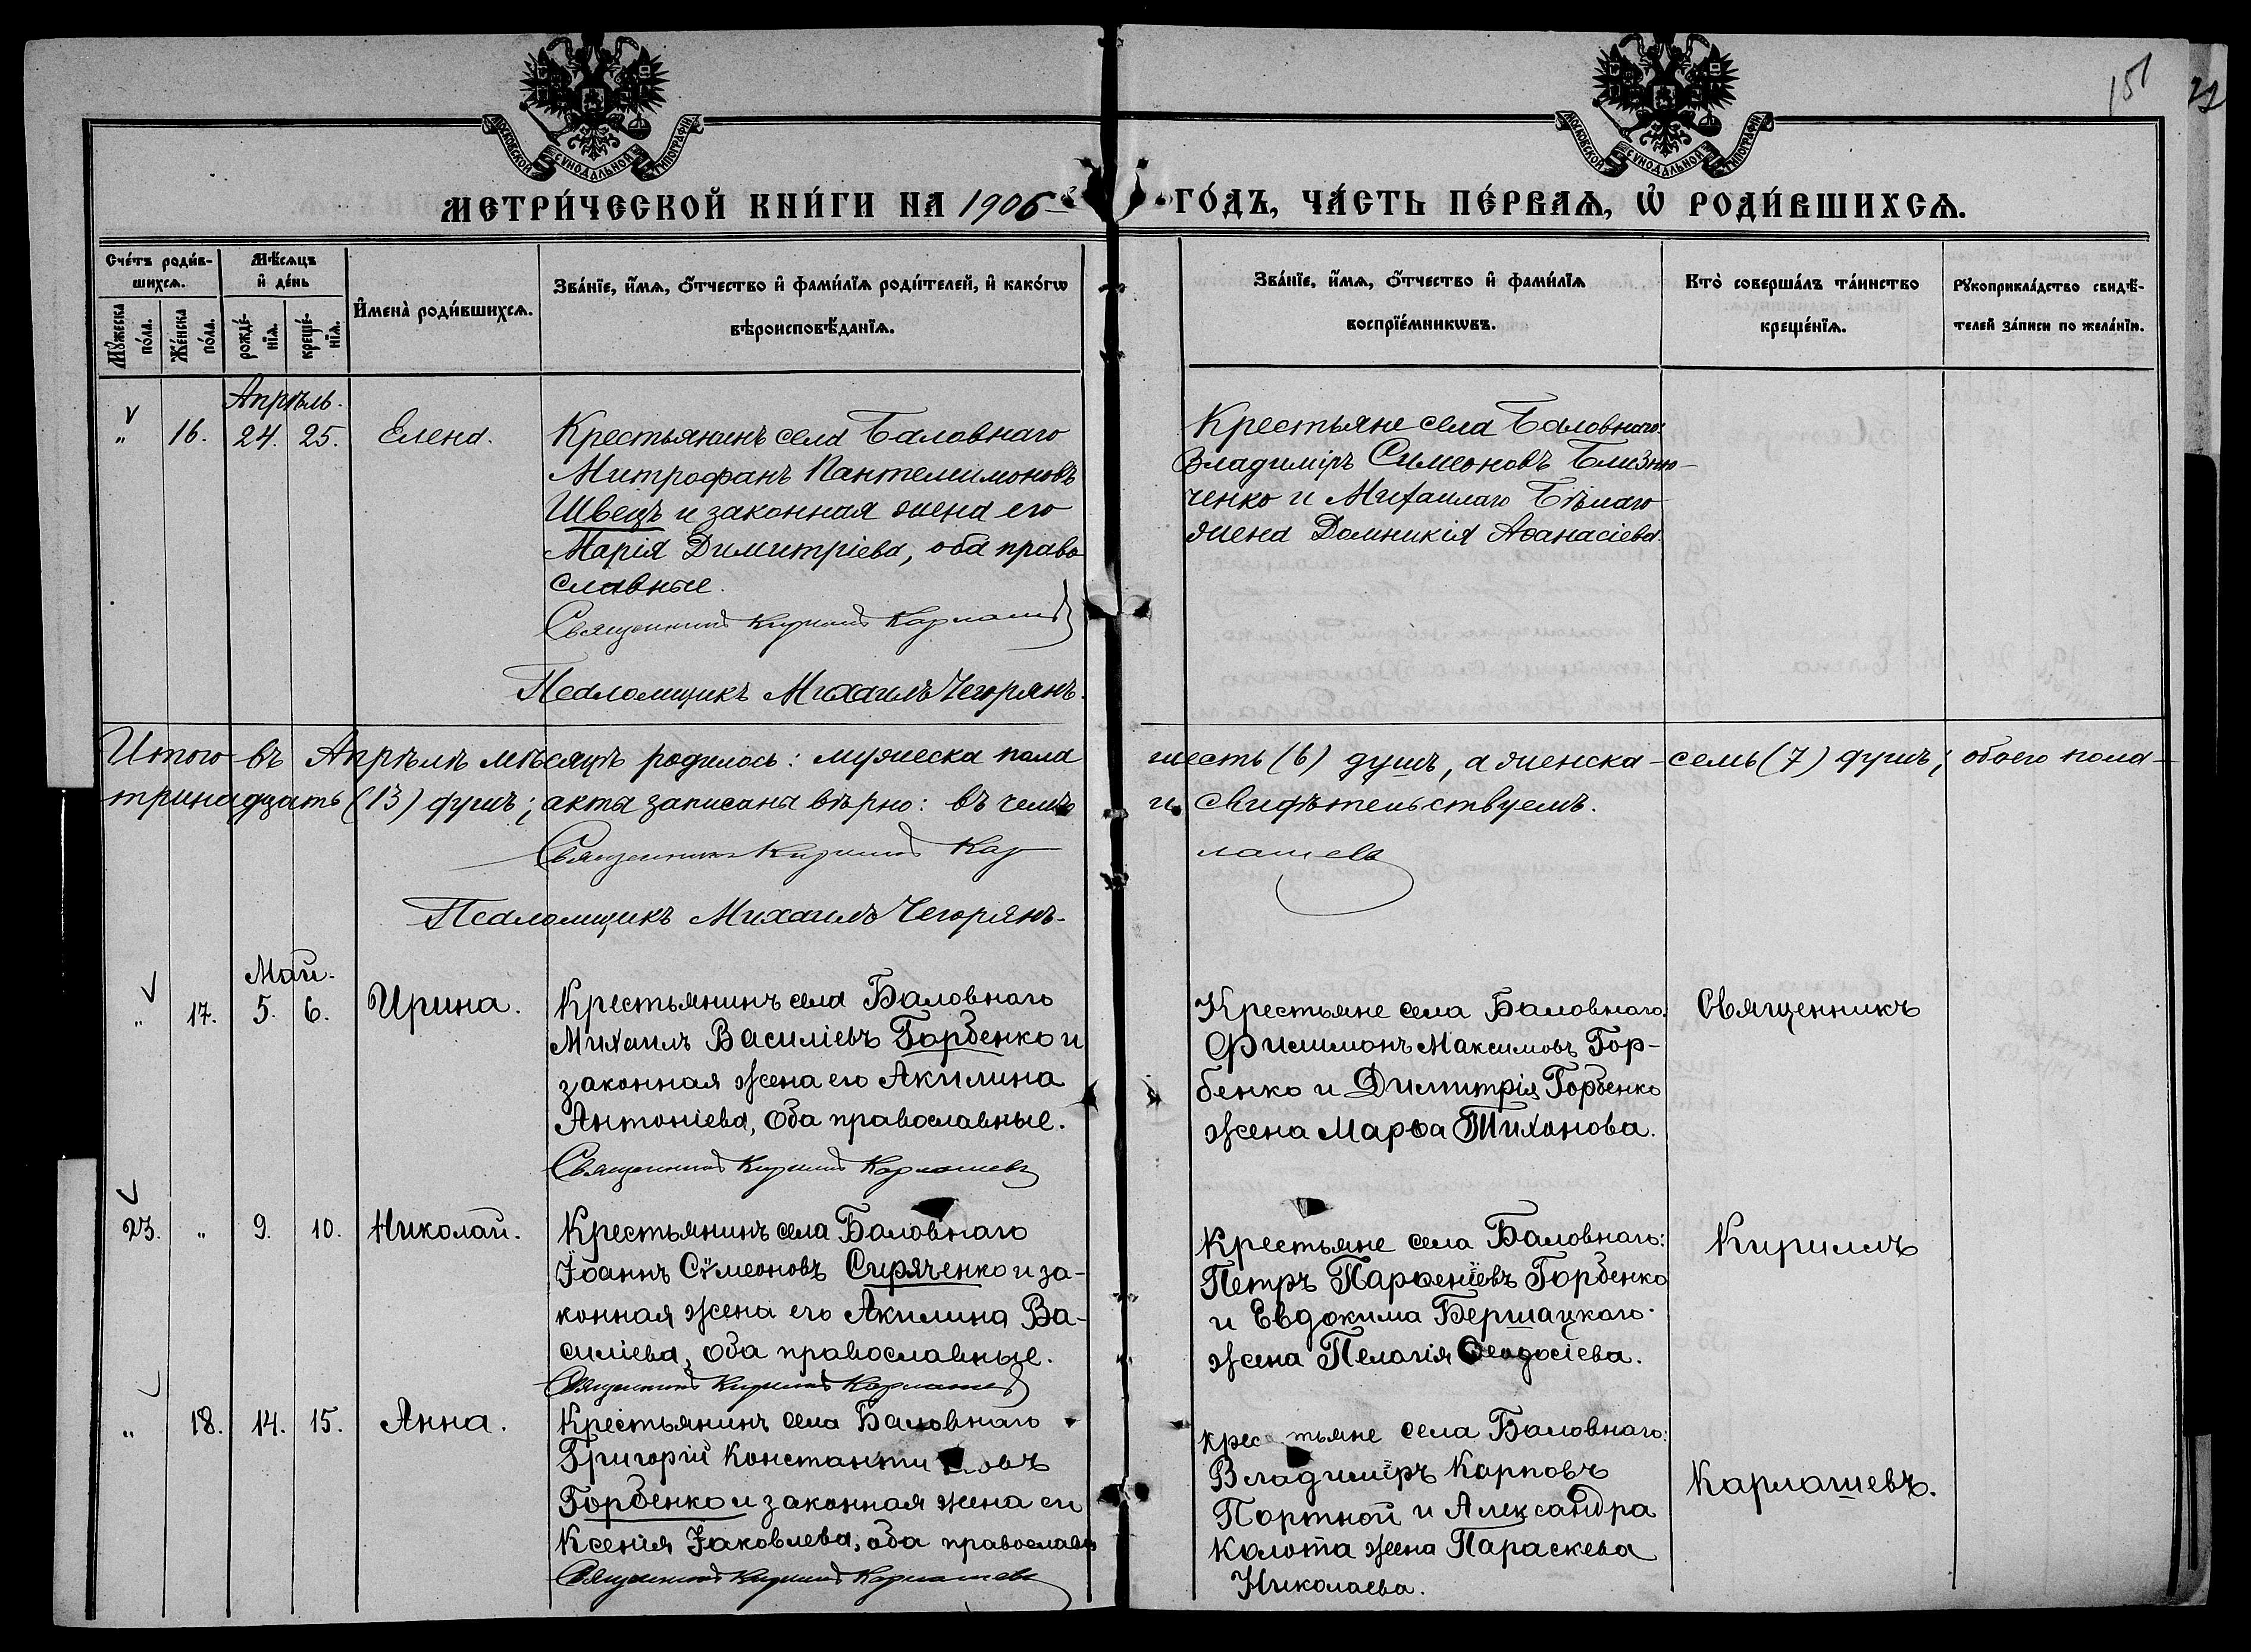 151
22
МОСКОВСКОЙ СѴНОДАЛЬНОЙ ТИПОГРАФІИ
МОСКОВСКОЙ СѴНОДАЛЬНОЙ ТИПОГРАФІИ
МЕТРИ́ЧЕСКОЙ КНИ́ГИ НА 1906
ГО́ДЪ, ЧА́СТЬ ПЕ́РВАѦ, Ѡ҆ РОДИ́ВШИХСѦ.
Сче́тъ роди́в-
шихсѧ.
Мꙋ́жеска
по́ла.
Же́нска
по́ла.
Мѣ́сѧцъ
и҆ де́нь
рожде́-
нїѧ.
креще́-
нїѧ.
И҆мена̀ роди́вшихсѧ.
Зва́нїе, и҆́мѧ, ѻ҆́тчество и҆ фами́лїѧ роди́телей, и҆ како́гѡ
вѣроисповѣ́данїѧ.
Зва́нїе, и҆́мѧ, ѻ҆́тчество и҆ фами́лїѧ
воспрїе́мникѡвъ.
Кто̀ соверша́лъ та́инство
креще́нїѧ.
Рꙋкоприкла́дство свидѣ́-
телей за́писи по жела́нїю.
Апрѣль.
" 16. 24. 25. Елена.
Крестьянинъ села Баловнаго
Митрофанъ Пантелеимоновъ
Швецъ и законная жена его
Марія Димитріева, оба право
славные.
Священникъ Кириллъ Карлашевъ
Псаломщикъ Михаилъ Чегорянъ.
Крестьяне села Баловнаго:
Владиміръ Симеоновъ Близню-
ченко и Михаилаго Бѣлаго
жена Домникія Аѳанасіева.
Итого въ Апрѣлѣ мѣсяцѣ родилось: мужеска пола шесть (6) душъ, а женска - семь (7) душъ; обоего пола -
тринадцать (13) душъ; акты записаны вѣрно: въ чемъ и свидѣтельствуемъ.
Священникъ Кириллъ Карлашевъ
Псаломщикъ Михаилъ Чегорянъ.
Май.
" 17. 5. 6. Ирина.
Крестьянинъ села Баловнаго
Михаилъ Василіевъ Горбенко и
законная жена его Акилина
Антоніева, оба православные.
Священникъ Кириллъ Карлашевъ
Крестьяне села Баловнаго:
Филимонъ Максимовъ Гор-
бенко и Димитрія Горбенко
жена Марѳа Тихонова.
Священникъ
23. " 9. 10. Николай.
Крестьянинъ села Баловнаго
Іоаннъ Сѵмеоновъ Сиряченко и за-
конная жена его Акилина Ва-
силіева, оба православные.
Священникъ Кириллъ Карлашевъ
Крестьяне села Баловнаго:
Петръ Парѳеніевъ Горбенко
и Евдокима Бершацкаго
жена Пелагія Ѳеодосіева.
Кириллъ
" 18. 14. 15. Анна.
Крестьянинъ села Баловнаго
Григорій Константиновъ
Горбенко и законная жена его
Ксенія Іаковлева, оба православн
Священникъ Кириллъ Карлашевъ
Крестьяне села Баловнаго:
Владиміръ Карповъ
Портной и Александра
Колота жена Параскева
Николаева.
Карлашевъ.